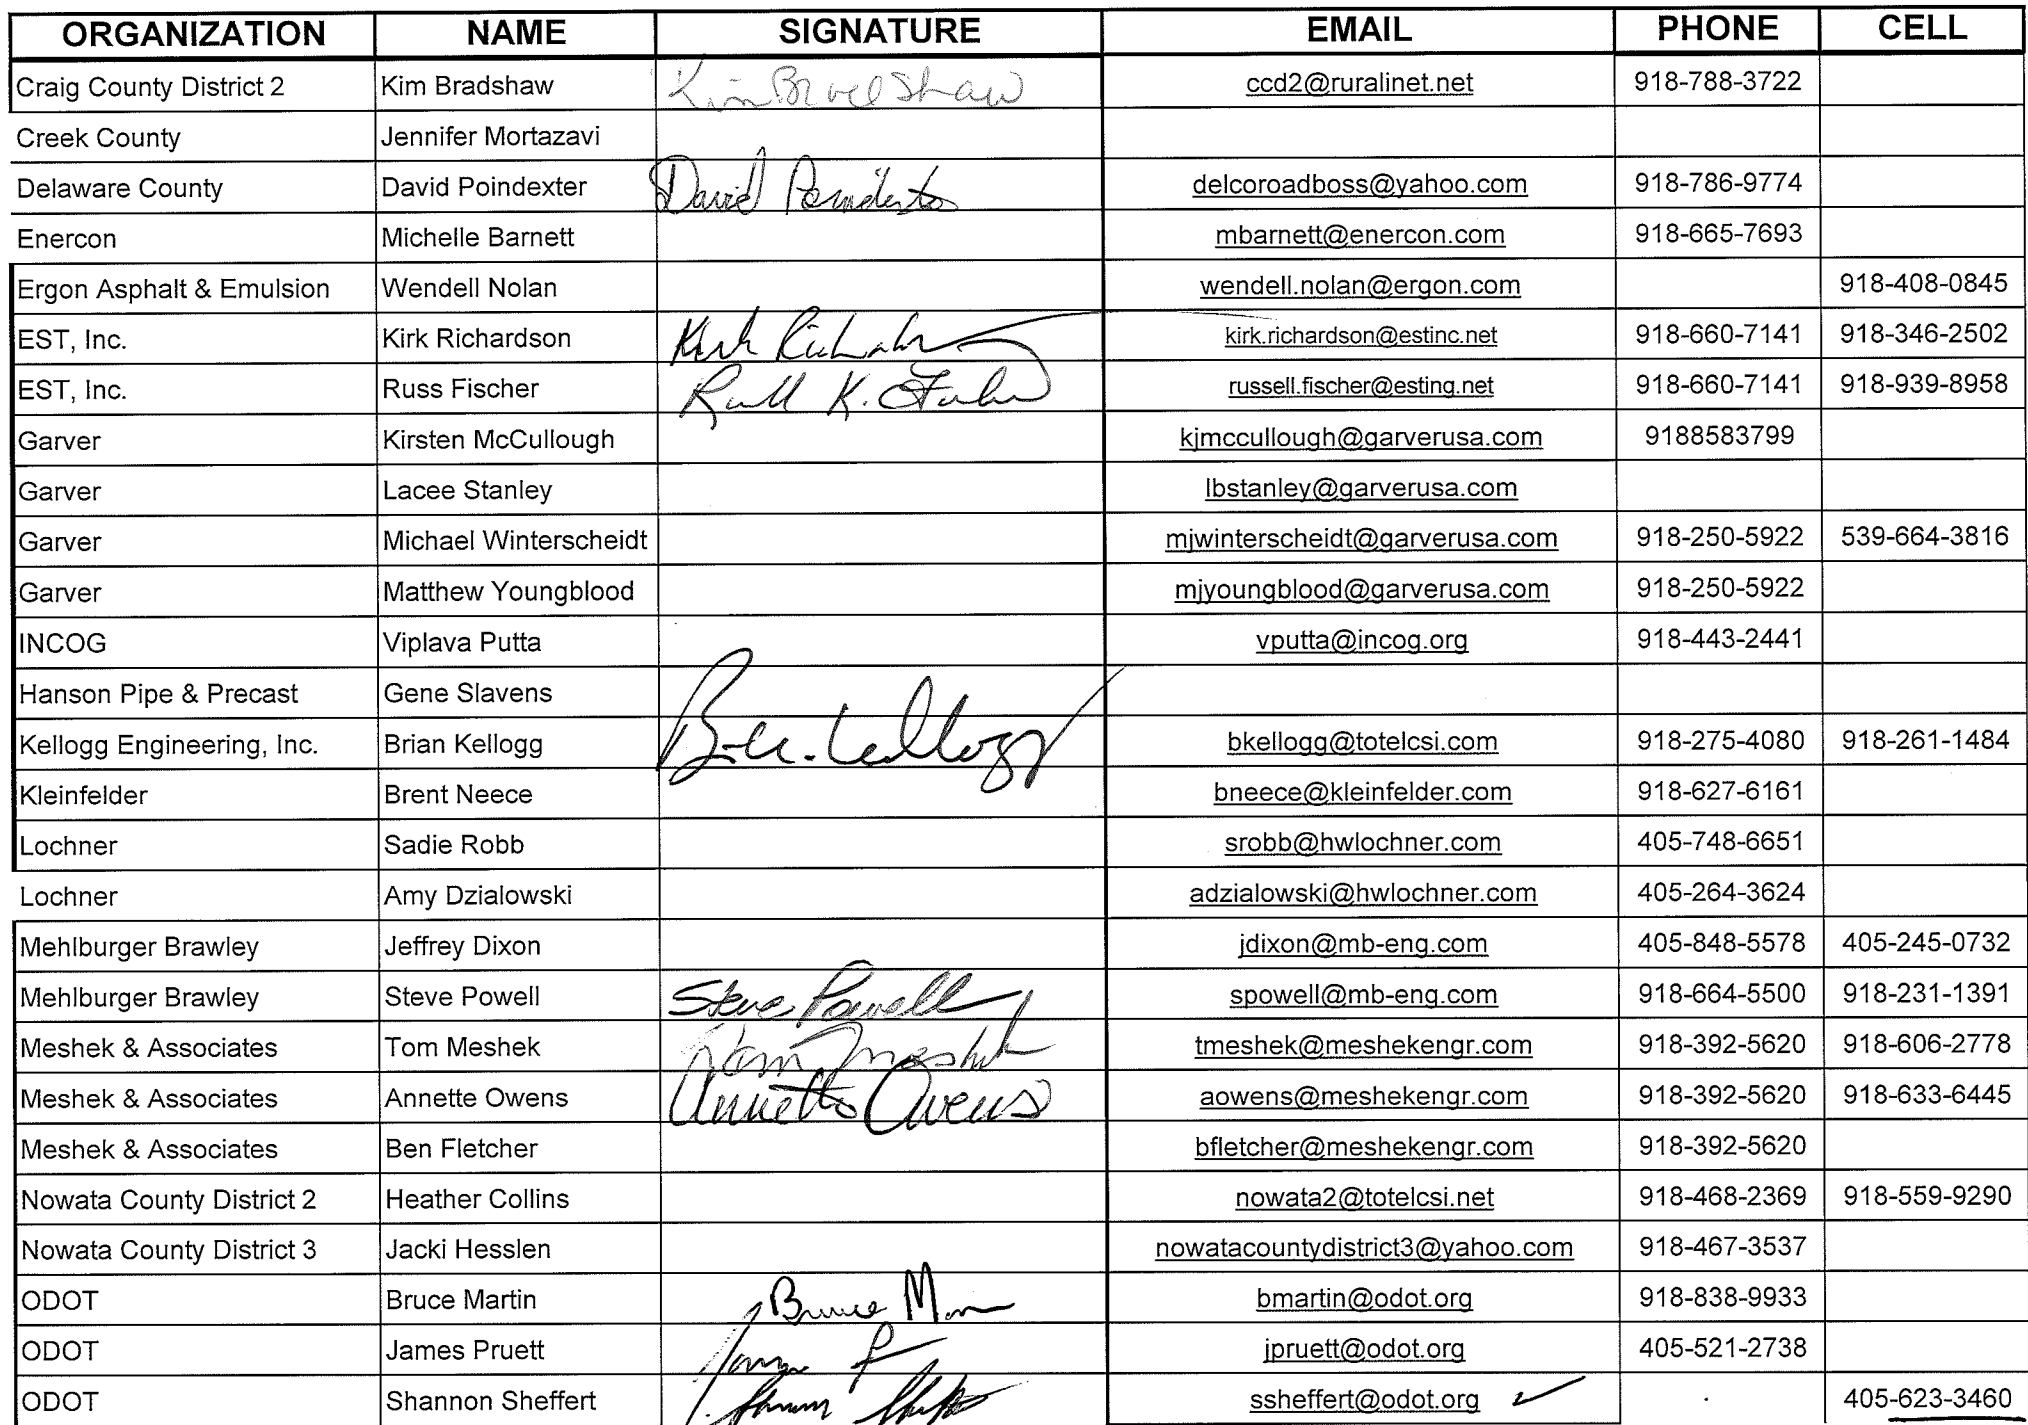 ORGANIZATION NAME SIGNATURE EMAIL PHONE CELL
Craig County District 2 Kim Bradshaw Kim Bradshaw ccd2@ruralinet.net 918-788-3722
Creek County Jennifer Mortazavi
Delaware County David Poindexter David Poindexter delcoroadboss@yahoo.com 918-786-9774
Enercon Michelle Barnett mbarnett@enercon.com 918-665-7693
Ergon Asphalt & Emulsion Wendell Nolan wendell.nolan@ergon.com 918-408-0845
EST, Inc. Kirk Richardson Kirk kirk.richardson@estinc.net 918-660-7141 918-346-2502
EST, Inc. Russ Fischer K. russell.fischer@esting.net 918-660-7141 918-939-8958
Garver Kirsten McCullough kjmccullough@garverusa.com 9188583799
Garver Lacee Stanley lbstanley@garverusa.com
Garver Michael Winterscheidt mjwinterscheidt@garverusa.com 918-250-5922 539-664-3816
Garver Matthew Youngblood mjyoungblood@garverusa.com 918-250-5922
INCOG Viplava Putta vputta@incog.org 918-443-2441
Hanson Pipe & Precast Gene Slavens
Kellogg Engineering, Inc. Brian Kellogg Kellogg bkellogg@totelcsi.com 918-275-4080 918-261-1484
Kleinfelder Brent Neece bneece@kleinfelder.com 918-627-6161
Lochner Sadie Robb srobb@hwlochner.com 405-748-6651
Lochner Amy Dzialowski adzialowski@hwlochner.com 405-264-3624
Mehlburger Brawley Jeffrey Dixon jdixon@mb-eng.com 405-848-5578 405-245-0732
Mehlburger Brawley Steve Powell Steve Powell spowell@mb-eng.com 918-664-5500 918-231-1391
Meshek & Associates Tom Meshek Tom Meshek tmeshek@meshekengr.com 918-392-5620 918-606-2778
Meshek & Associates Annette Owens Annette Owens aowens@meshekengr.com 918-392-5620 918-633-6445
Meshek & Associates Ben Fletcher bfletcher@meshekengr.com 918-392-5620
Nowata County District 2 Heather Collins nowata2@totelcsi.net 918-468-2369 918-559-9290
Nowata County District 3 Jacki Hesslen nowatacountydistrict3@yahoo.com 918-467-3537
ODOT Bruce Martin Bruce bmartin@odot.org 918-838-9933
ODOT James Pruett jpruett@odot.org 405-521-2738
ODOT Shannon Sheffert ssheffert@odot.org 405-623-3460